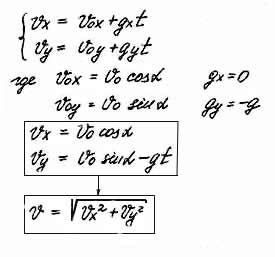 vx = v0x + gxt
vy = v0y + gyt
где v0x = v0 cosα gx = 0
v0y = v0 sinα gy = -g
vx = v0 cosα
vy = v0 sinα - gt
v = √vx² + vy²